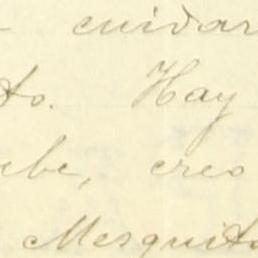 cuidar
to. Hay
ebe, creo
Mesquito